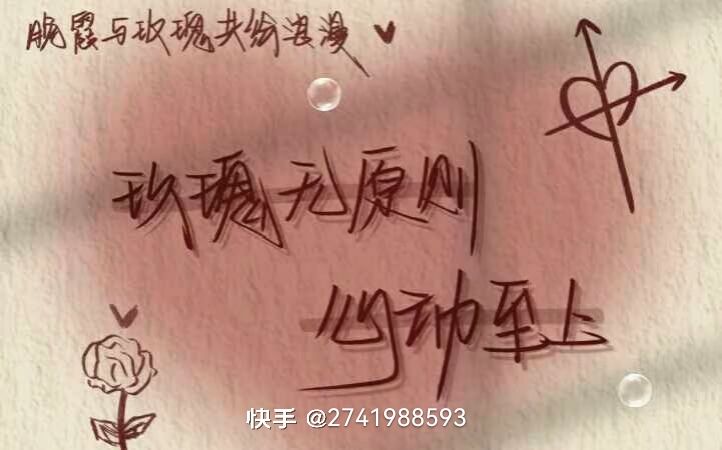 晚霞与玫瑰共绘浪漫
玫瑰无原则
心动至上
快手 @2741988593